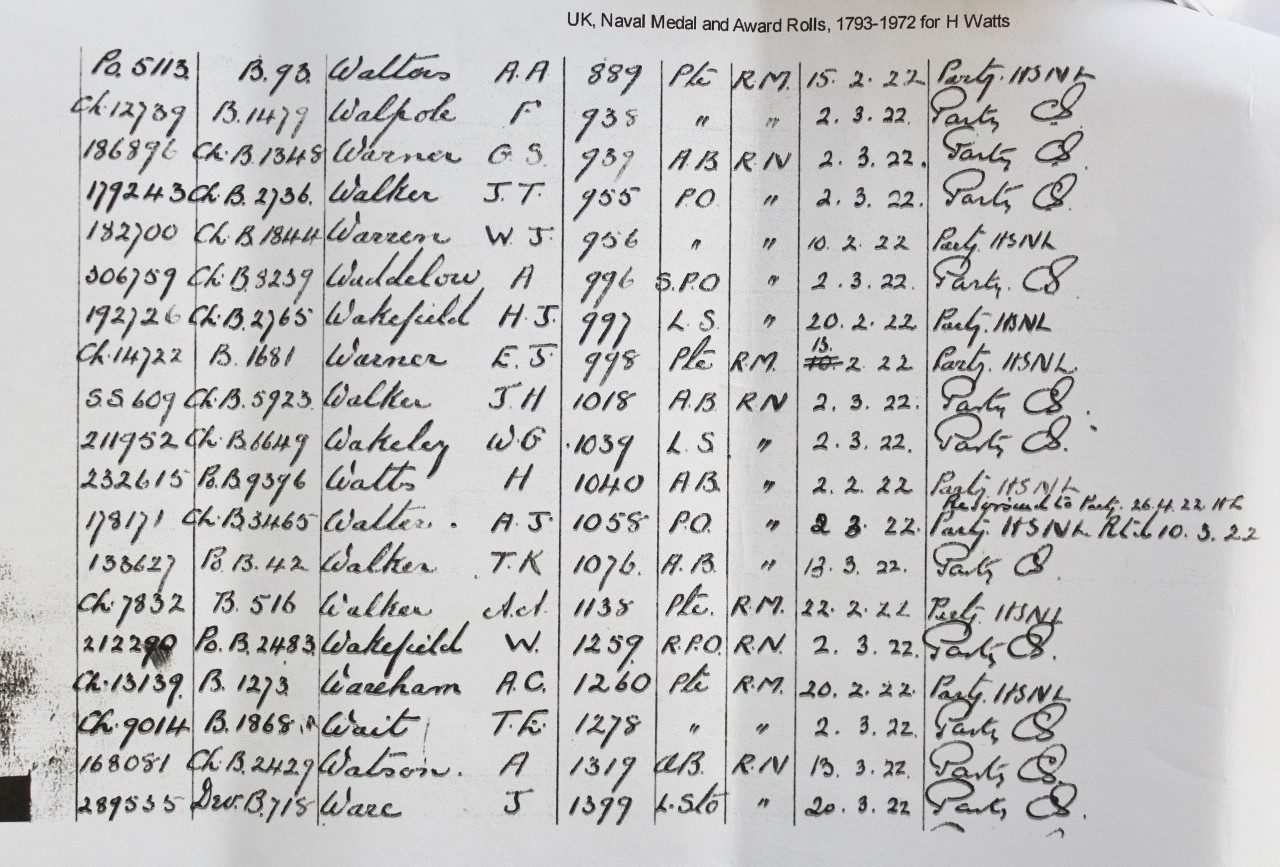 UK, Naval Medal and Award Rolls, 1793-1972 for H Watts
Po. 5113 B. 93. Walters A. A 889 Pte R.M. 15. 2. 22 Party. HSNL
Ch. 12739 B. 1479 Walpole F 938 " " 2. 3. 22. Party CS
186896 Ch. B. 1348 Warner G. S. 939 A.B R.N 2. 3. 22. Party CS.
179243 Ch. B. 2736. Walker J. T. 955 P.O. " 2. 3. 22. Party CS.
182700 Ch. B. 1844 Warren W. J. 956 " " 10. 2. 22 Party. HSNL
306759 Ch. B. 3239 Waddelow A 996 S.P.O " 2. 3. 22. Party. CS
192726 Ch. B. 2765 Wakefield H. J. 997 L. S. " 20. 2. 22 Party. HSNL
Ch. 14722 B. 1681 Warner E. J. 998 Pte R.M. 13. 2. 22 Party. HSNL.
S.S. 609 Ch. B. 5923. Walker J. H 1018 A.B. R.N 2. 3. 22. Party CS.
211952 Ch. B. 6649 Wakeley W. G 1039 L. S " 2. 3. 22. Party CS.
232615 Po. B. 9396 Watts H 1040 A.B. " 2. 2. 22 Party. HSNL
to Party. 26. 4. 22
178171 Ch. B. 3465 Walter. A. J. 1058 P.O. " 2 3. 22. Party. HSNL 10. 3. 22
133627 Po. B. 42 Walker T. K 1076. A. B. " 13. 3. 22. Party CS.
Ch. 7832 B. 516 Walker A. A. 1138 Pte. R.M. 22. 2. 22 Party. HSNL
212290 Po. B. 2483. Wakefield W. 1259 R.P.O. R.N. 2. 3. 22. Party CS.
Ch. 13139. B. 1273. Wareham A. C. 1260 Pte R.M. 20. 2. 22. Party. HSNL
Ch. 9014 B. 1868. Wait T. E. 1278 " " 2. 3. 22. Party CS
168081 Ch. B. 2429 Watson. A 1319 A.B. R.N 13. 3. 22. Party CS.
289535 Dev. B. 718 Ware J 1399 L. Sto " 20. 3. 22 Party CS.